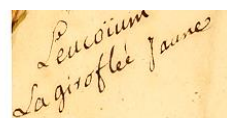 Leucoium
La giroflée Jaune